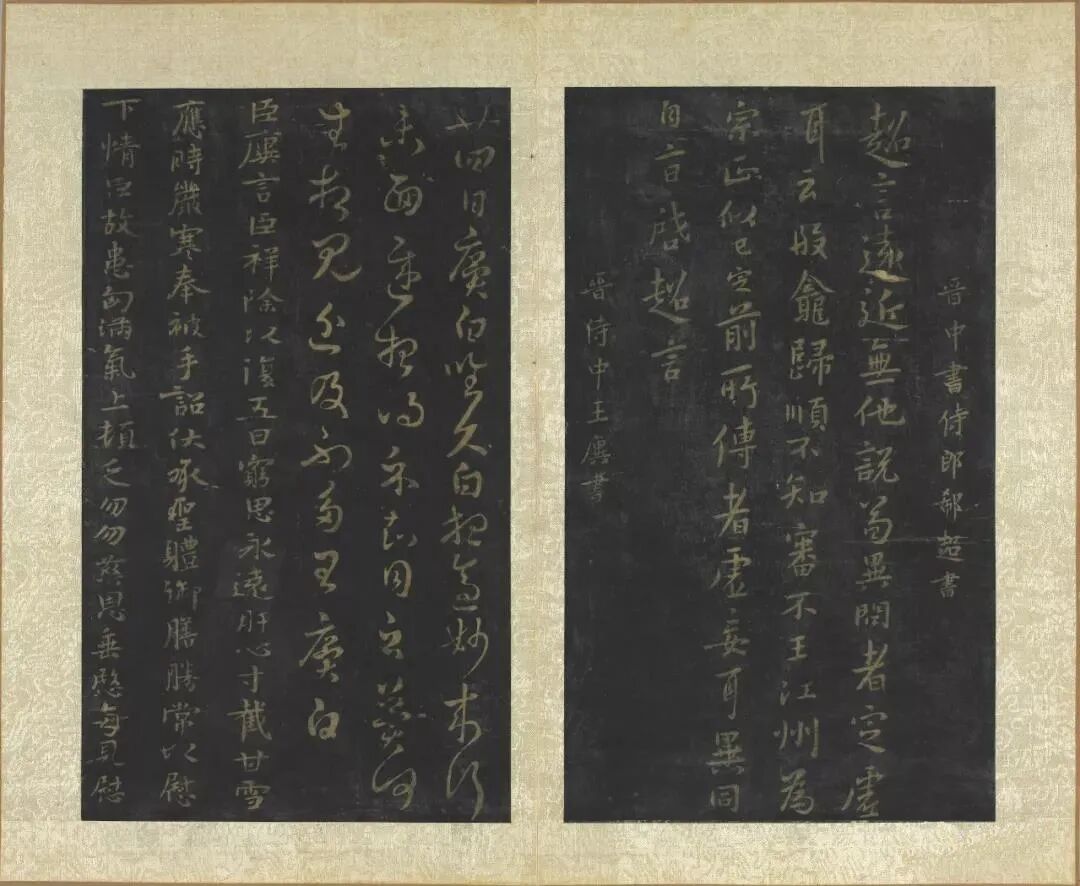 晉中書侍郎郗超書
超言遠近無他說異問者定虛
耳云殷龕歸順不知審不王江州為
宗正似已定前所傳者虛妄耳異同
自言啓超言
晉侍中王廙書
廿四日廙白昨久白想妙未行
面遲想得示知同之其何
見近及不多王廙白
臣廙言臣祥除以復五日窮思永遠肝心寸截甘雪
應時嚴寒奉被手詔伏承聖體御膳勝常以慰
下情臣故患匈滿氣上頓乏勿勿慈恩垂愍每見慰